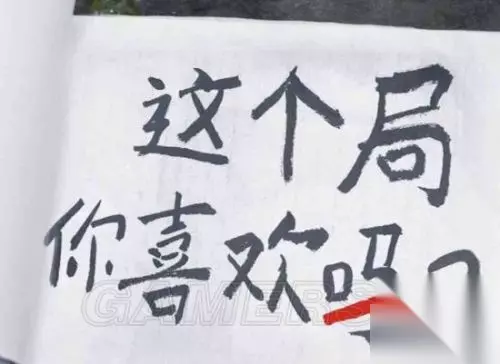 这个局
你喜欢吗?
GAMERS